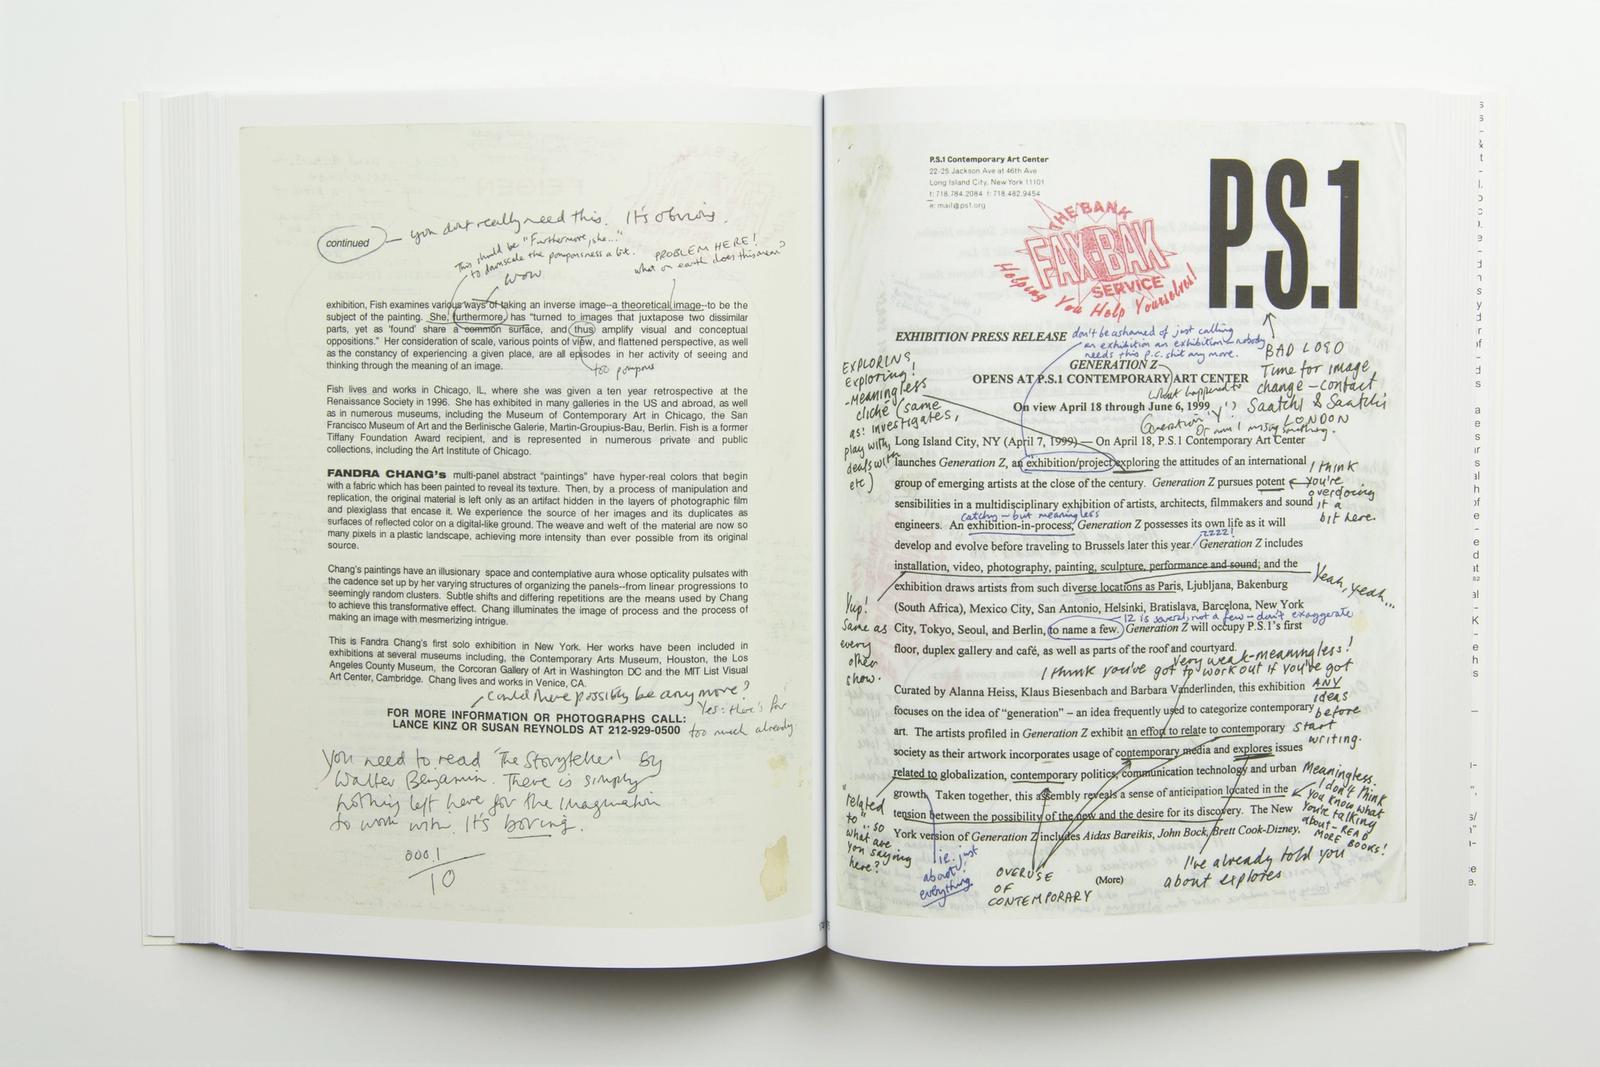 you don't really need this. It's obvious.
continued
This should be "Furthermore, she..."
to downscale the pompousness a bit.
wow
PROBLEM HERE!
what on earth does this mean?
exhibition, Fish examines various ways of taking an inverse image--a theoretical image--to be the
subject of the painting. She, furthermore, has "turned to images that juxtapose two dissimilar
parts, yet as 'found' share a common surface, and thus amplify visual and conceptual
oppositions." Her consideration of scale, various points of view, and flattened perspective, as well
as the constancy of experiencing a given place, are all episodes in her activity of seeing and
thinking through the meaning of an image.
too pompous
Fish lives and works in Chicago, IL, where she was given a ten year retrospective at the
Renaissance Society in 1996. She has exhibited in many galleries in the US and abroad, as well
as in numerous museums, including the Museum of Contemporary Art in Chicago, the San
Francisco Museum of Art and the Berlinische Galerie, Martin-Groupius-Bau, Berlin. Fish is a former
Tiffany Foundation Award recipient, and is represented in numerous private and public
collections, including the Art Institute of Chicago.
FANDRA CHANG's multi-panel abstract "paintings" have hyper-real colors that begin
with a fabric which has been painted to reveal its texture. Then, by a process of manipulation and
replication, the original material is left only as an artifact hidden in the layers of photographic film
and plexiglass that encase it. We experience the source of her images and its duplicates as
surfaces of reflected color on a digital-like ground. The weave and weft of the material are now so
many pixels in a plastic landscape, achieving more intensity than ever possible from its original
source.
Chang's paintings have an illusionary space and contemplative aura whose opticality pulsates with
the cadence set up by her varying structures of organizing the panels--from linear progressions to
seemingly random clusters. Subtle shifts and differing repetitions are the means used by Chang
to achieve this transformative effect. Chang illuminates the image of process and the process of
making an image with mesmerizing intrigue.
This is Fandra Chang's first solo exhibition in New York. Her works have been included in
exhibitions at several museums including, the Contemporary Arts Museum, Houston, the Los
Angeles County Museum, the Corcoran Gallery of Art in Washington DC and the MIT List Visual
Art Center, Cambridge. Chang lives and works in Venice, CA.
could there possibly be any more?
Yes: there's far
too much already
FOR MORE INFORMATION OR PHOTOGRAPHS CALL:
LANCE KINZ OR SUSAN REYNOLDS AT 212-929-0500
You need to read 'The Storyteller' by
Walter Benjamin. There is simply
nothing left here for the imagination
to work with. It's boring.
000.1
10
P.S.1 Contemporary Art Center
22-25 Jackson Ave at 46th Ave
Long Island City, New York 11101
t: 718.784.2084 f: 718.482.9454
e: mail@ps1.org
P.S.1
THE BANK
FAX-BAK
SERVICE
Helping You Help Yourselves!
EXHIBITION PRESS RELEASE
don't be ashamed of just calling
an exhibition an exhibition - nobody
needs this p.c. shit any more.
BAD LOGO
Time for image
change - contact
Saatchi & Saatchi
LONDON
GENERATION Z
OPENS AT P.S.1 CONTEMPORARY ART CENTER
On view April 18 through June 6, 1999
What happened to
Generation 'Y'?
Or am I missing something.
EXPLORING
Exploring!
-Meaningless
cliché (same
as: investigates,
play with,
deals with
etc)
Long Island City, NY (April 7, 1999) — On April 18, P.S.1 Contemporary Art Center
launches Generation Z, an exhibition/project exploring the attitudes of an international
group of emerging artists at the close of the century. Generation Z pursues potent
sensibilities in a multidisciplinary exhibition of artists, architects, filmmakers and sound
I think
you're
overdoing
it a
bit here.
catchy - but meaningless
engineers. An exhibition-in-process, Generation Z possesses its own life as it will
zzzz!
develop and evolve before traveling to Brussels later this year. Generation Z includes
installation, video, photography, painting, sculpture, performance and sound; and the
exhibition draws artists from such diverse locations as Paris, Ljubljana, Bakenburg
Yeah, yeah...
(South Africa), Mexico City, San Antonio, Helsinki, Bratislava, Barcelona, New York
12 is several, not a few - don't exaggerate
City, Tokyo, Seoul, and Berlin, to name a few. Generation Z will occupy P.S.1's first
floor, duplex gallery and café, as well as parts of the roof and courtyard.
Yup!
Same as
every
other
show.
very weak-meaningless!
I think you've got to work out if you've got
ANY
ideas
before
start
writing.
Curated by Alanna Heiss, Klaus Biesenbach and Barbara Vanderlinden, this exhibition
focuses on the idea of "generation" – an idea frequently used to categorize contemporary
art. The artists profiled in Generation Z exhibit an effort to relate to contemporary
society as their artwork incorporates usage of contemporary media and explores issues
related to globalization, contemporary politics, communication technology and urban
growth. Taken together, this assembly reveals a sense of anticipation located in the
tension between the possibility of the new and the desire for its discovery. The New
York version of Generation Z includes Aidas Bareikis, John Bock, Brett Cook-Dizney,
Meaningless.
I don't think
you know what
you're talking
about - READ
MORE BOOKS!
"related
to"... so
what are
you saying
here?
ie. just
about
everything.
OVERUSE
OF
CONTEMPORARY
(More)
I've already told you
about explores